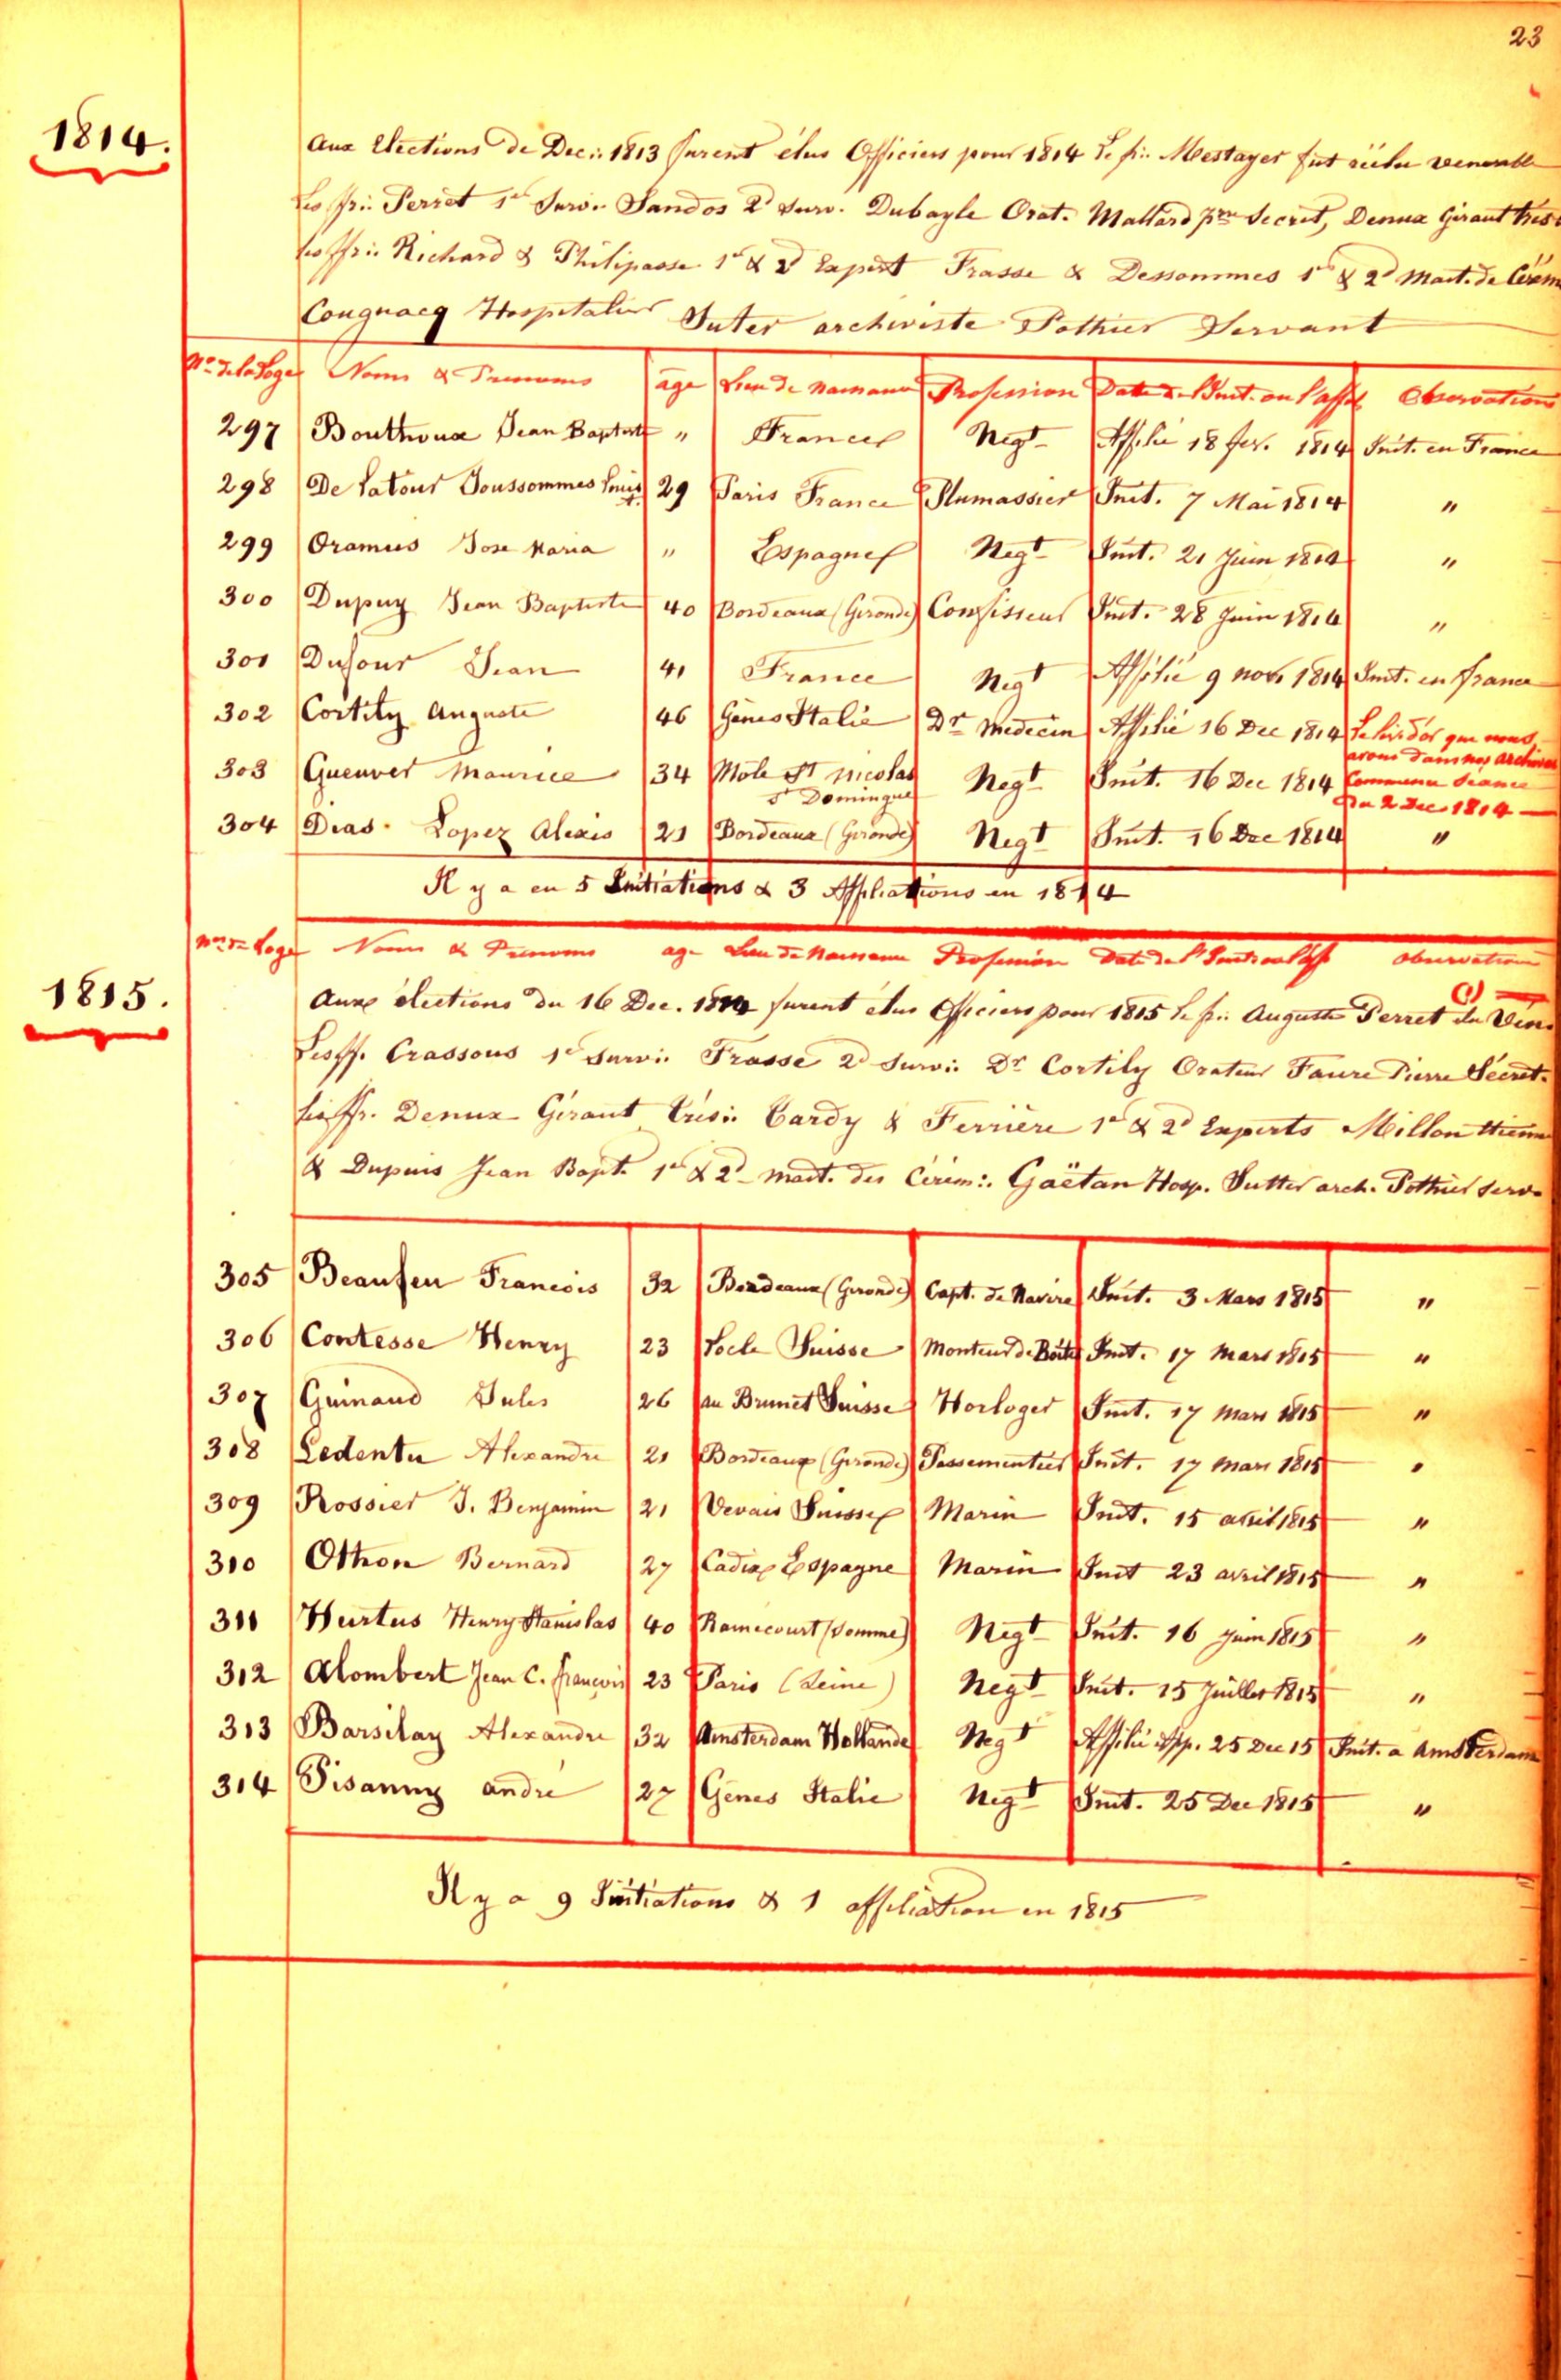 23
1814.
Aux Elections de Dec:: 1813 furent élus Officiers pour 1814 Le fr:: Mestayer fut réélu venerable
Les ffr:: Perret 1er Surv:: Sandos 2d Surv. Dubayle Orat. Mallard Secret, Denux Gérant Trés.
les ffr:: Richard & Philipasse 1er & 2d Expert Frasse & Dessommes 1er & 2d Mait. de Cérém
Cougnacq Hospitalier Suter archiviste Pothier Servant
No. de la Loge Noms & Prenoms age Lieu de naissance Profession Date de l'Init. ou l'affil Observations
297 Bouthoux Jean Baptiste " France Negt Affilié 18 fev. 1814 Init. en France
298 De Latour Joussommes Louis 29 Paris France Plumassier Init. 7 Mai 1814 "
299 Oramus Jose Maria " Espagne Negt Init. 21 Juin 1814 "
300 Dupuy Jean Baptiste 40 Bordeaux (Gironde) Confisseur Init. 28 Juin 1814 "
301 Dufour Jean 41 France Negt Affilié 9 nov. 1814 Init. en france
302 Cortily Auguste 46 Gènes Italie Dr Medecin Affilié 16 Dec 1814 Le liv. d'or que nous
avons dans nos archives
303 Guenver Maurice 34 Mole St Nicolas Negt Init. 16 Dec 1814 Commence Séance
St Domingue
du 2 Dec 1814
304 Dias Lopez Alexis 21 Bordeaux (Gironde) Negt Init. 16 Dec 1814 "
Il y a eu 5 Initiations & 3 Affiliations en 1814
No. de Loge Noms & Prenoms age Lieu de Naissance Profession Date de l'Init. ou l'aff Observations
1815.
Aux élections du 16 Dec. 1814 furent élus Officiers pour 1815 le fr:: Auguste Perret élu Ven. (1)
Les ff. Crassous 1er Surv:: Frasse 2d Surv:: Dr Cortily Orateur Faure Pierre Secret.
les ffr. Denux Gérant Trés:: Cardy & Ferrière 1er & 2d Experts Millon Etienne
& Dupuis Jean Bapt. 1er & 2d Mait. des Cérém:: Gaëtan Hosp. Sutter arch. Pothier Serv.
305 Beaufeu Francois 32 Bordeaux (Gironde) Capt. de Navire Init. 3 Mars 1815 "
306 Contesse Henry 23 Locle Suisse Monteur de Boites Init. 17 Mars 1815 "
307 Guinand Jules 26 au Brunet Suisse Horloger Init. 17 Mars 1815 "
308 Ledentu Alexandre 21 Bordeaux (Gironde) Passementier Init. 17 Mars 1815 "
309 Rossier J. Benjamin 21 Vevais Suisse Marin Init. 15 avril 1815 "
310 Othon Bernard 27 Cadix Espagne Marin Init 23 avril 1815 "
311 Hurtus Henry Stanislas 40 Ramecourt (Somme) Negt Init. 16 Juin 1815 "
312 Alombert Jean C. françois 23 Paris (Seine) Negt Init. 15 Juillet 1815 "
313 Barsilay Alexandre 32 Amsterdam Hollande Negt Affilié App. 25 Dec 15 Init. a Amsterdam
314 Pisanny andré 27 Gènes Italie Negt Init. 25 Dec 1815 "
Il y a 9 Initiations & 1 affiliation en 1815